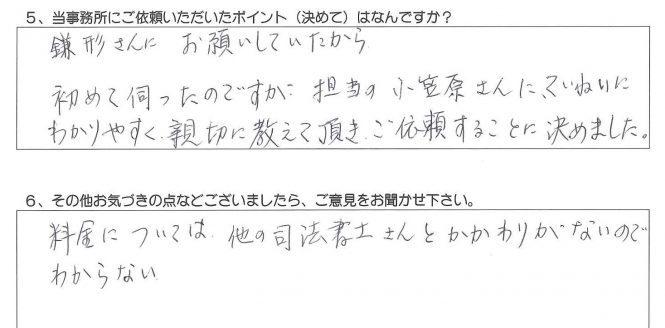 5、当事務所にご依頼いただいたポイント（決めて）はなんですか？
鎌形さんに お願いしていたから
初めて伺ったのですが 担当の小笠原さんに、ていねいに
わかりやすく、親切に教えて頂き、ご依頼することに決めました。
6、その他お気づきの点などございましたら、ご意見をお聞かせ下さい。
料金については、他の司法書士さんとかかわりがないので
わからない